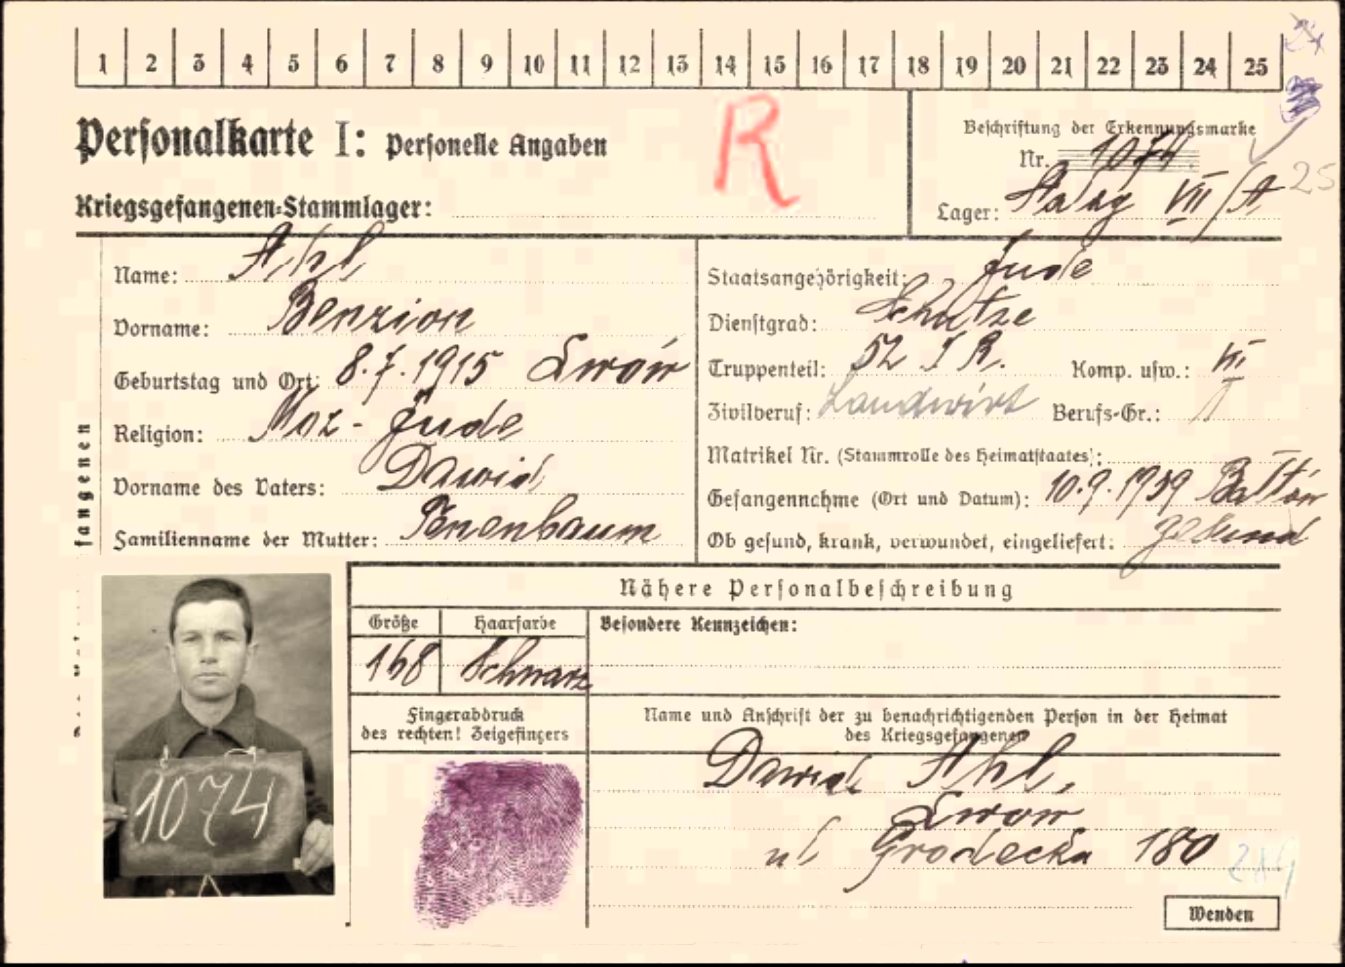 1 2 3 4 5 6 7 8 9 10 11 12 13 14 15 16 17 18 19 20 21 22 23 24 25
Personalkarte I: Personelle Angaben
R
Kriegsgefangenen-Stammlager:
Beschriftung der Erkennungsmarke
Nr. 1074.
Lager: Stalag VII/A
25
Name: Ahl
Vorname: Benzion
Geburtstag und Ort: 8.7.1915 Lwów
Religion: Moz-Jude
Vorname des Vaters: Dawid
Familienname der Mutter: Tenenbaum
Staatsangehörigkeit: Jude
Dienstgrad: Schütze
Truppenteil: 52 I R. Komp. usw.: VI
Zivilberuf: Landwirt Berufs-Gr.:
Matrikel Nr. (Stammrolle des Heimatstaates):
Gefangennahme (Ort und Datum): 10.9.1939
Ob gesund, krank, verwundet, eingeliefert: gesund
fangenen
Nähere Personalbeschreibung
Größe Haarfarbe Besondere Kennzeichen:
168 Schwarz
Fingerabdruck
des rechten! Zeigefingers
Name und Anschrift der zu benachrichtigenden Person in der Heimat
des Kriegsgefangenen
Dawid Ahl,
Lwow
ul Grodecka 180
1074
Wenden